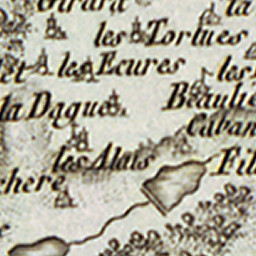 Girard la
les Tortues
et les Ecures les
la Daque Beaulie
Caban
les Alais
chere Fil